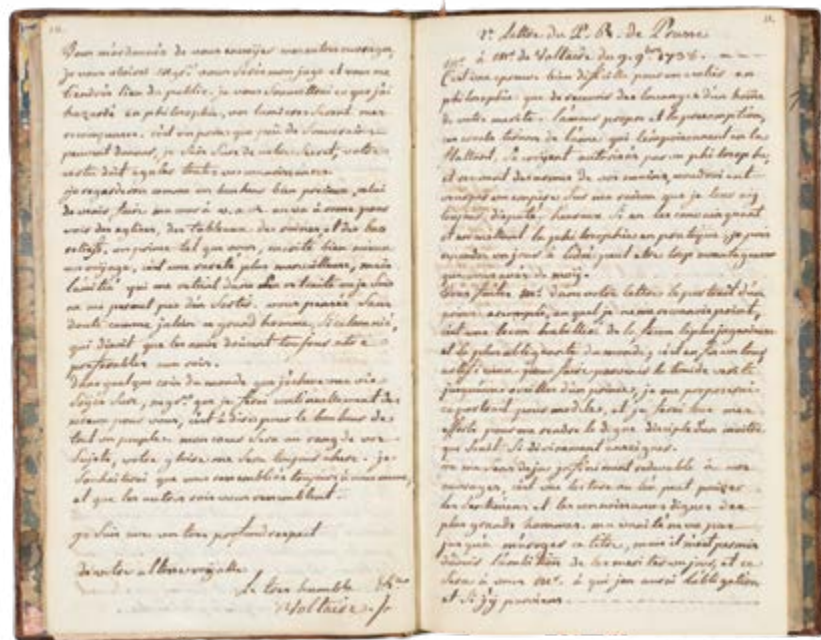 10.
Vous m'ordonnés de vous envoyer mes autres ouvrages,
je vous obeirai mgr. vous serés mon juge et vous me
tiendrés lieu du public. je vous soumettrai ce que j'ai
hazardé en philosophie, vos lumieres seront ma
recompense. c'est un prix que peu de Souverains
peuvent donner, je suis sure de votre secret, votre
vertu doit egaler toutes vos connoissances.
je regarderois comme un bonheur bien précieux, celui
de venir faire ma cour à v. a. r. on va à rome pour
voir des eglises, des tableaux des ruines, et des bas
reliefs. un prince tel que vous, merite bien mieux
un voyage, c'est une rareté plus merveilleuse, mais
l'amitié qui me retient dans la retraite ou je suis
ne me permet pas d'en sortir. vous pensés sans
doute comme julien ce grand homme, si calomnié,
qui disoit que les amis doivent toujours etre
preferables aux rois.
Dans quelque coin du monde que j'acheve ma vie
soyés sure, mgr. que je ferai continuellement des
voeux pour vous, c'est à dire pour le bonheur de
tout un peuple. mon coeur sera au rang de vos
sujets, votre gloire me sera toujours chere. je
souhaiterai que vous ressembliés toujours à vous meme,
et que les autres rois vous ressemblent.
je suis avec un tres profond respect
de votre altesse royalle
Le tres humble &c
Voltaire
11.
Lettre du P. R. de Prusse
à Mr. de Voltaire du 9. 9bre 1736.
C'est une epreuve bien difficille pour un ecolier en
philosophie que de recevoir des louanges d'un homme
de votre merite. l'amour propre et la presomption,
ces cruels tirans de l'ame qui l'empoisonnent en la
flattant, se croyent autorisés par un philosophe,
et recevant des armes de vos mains, voudroient
usurper un empire sur ma raison que je leur ai
toujours disputé. heureux si en les convainquant
et en mettant la philosophie en pratique, je puis
repondre un jour à l'idée peut etre trop avantageuse
que vous avés de moy.
Vous faites Mr. dans votre lettre le portrait d'un
prince accompli, auquel je ne me reconnois point,
c'est une lecon habillée de la facon la plus ingenieuse
et la plus obligeante du monde, c'est enfin un tour
artificieux pour faire parvenir la timide verité
jusqu'aux oreilles d'un prince, je me proposerai
ce portrait pour modele, et je ferai tous mes
efforts pour me rendre le digne disciple d'un maitre
qui sçait si divinement enseigner.
je me sens deja infiniment redevable à vos
ouvrages, c'est une source ou l'on peut puiser
les sentimens et les connoissances dignes des
plus grands hommes. ma vanité ne va pas
jusqu'à m'arroger ce titre, mais
à qui j'en aurai l'obligation
et si j'y parviens